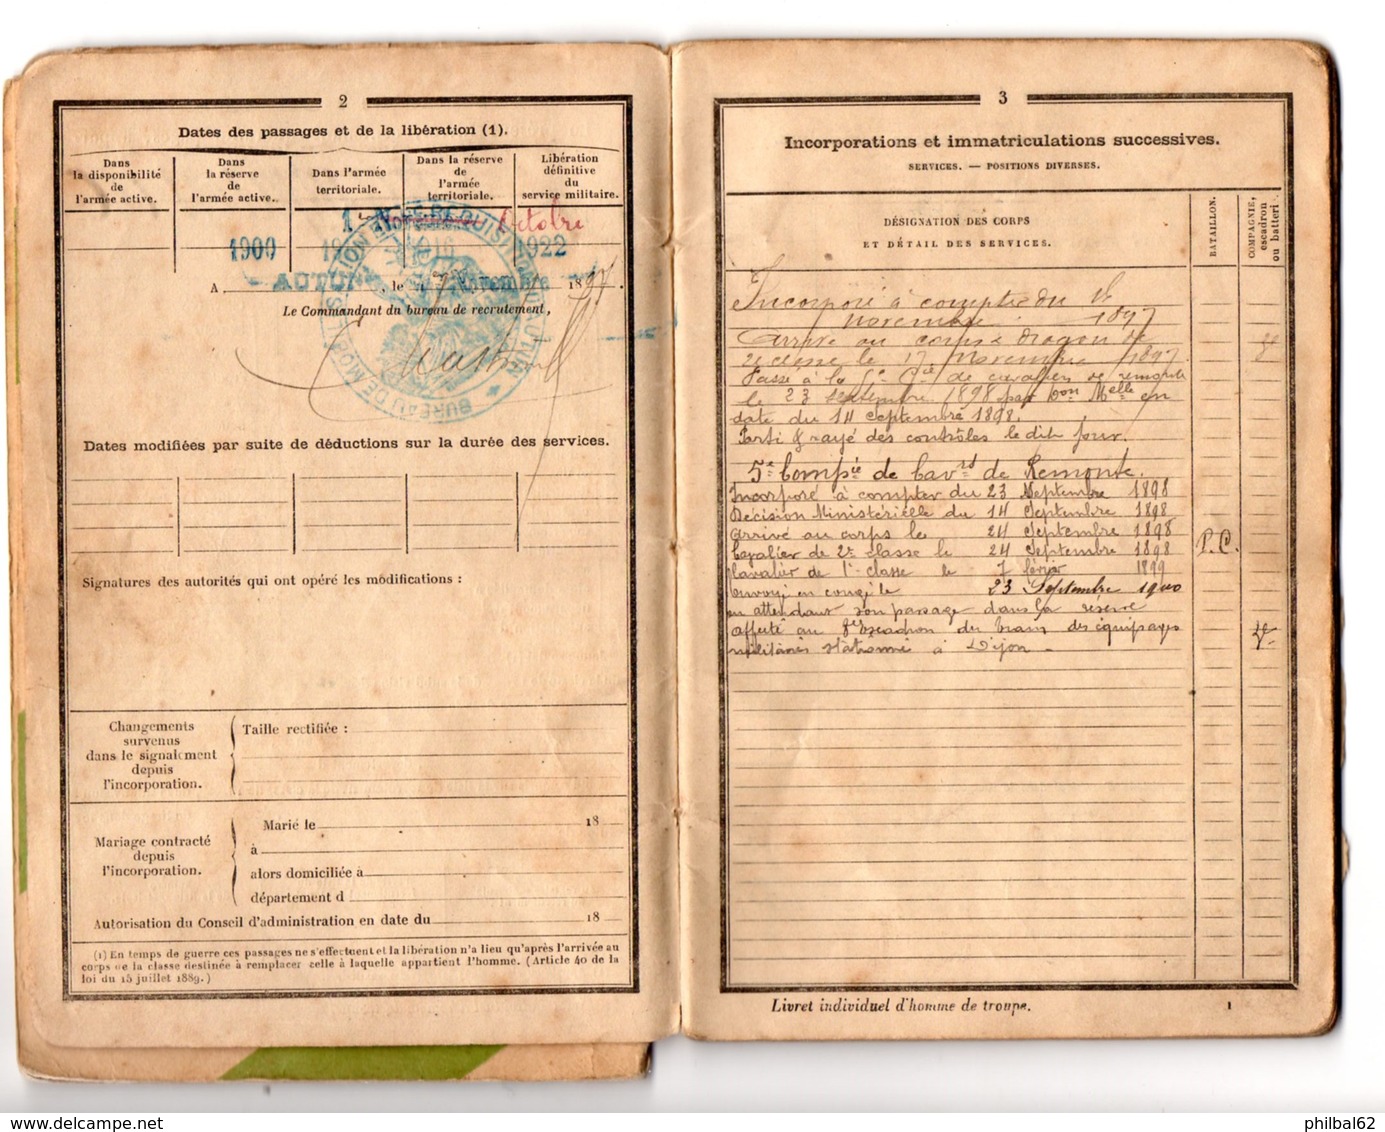 2
Dates des passages et de la libération (1).
Dans la disponibilité de l'armée active.
Dans la réserve de l'armée active.
Dans l'armée territoriale.
Dans la réserve de l'armée territoriale.
Libération définitive du service militaire.
1er Novembre Octobre
1900 19 1916 1922
A AUTUN, le 17 Novembre 1897.
Le Commandant du bureau de recrutement,
BUREAU DE MOBILISATION ET DE RÉQUISITION AUTUN
Dates modifiées par suite de déductions sur la durée des services.
Signatures des autorités qui ont opéré les modifications :
Changements survenus dans le signalement depuis l'incorporation.
Taille rectifiée :
Mariage contracté depuis l'incorporation.
Marié le 18
à
alors domiciliée à
département d
Autorisation du Conseil d'administration en date du 18
(1) En temps de guerre ces passages ne s'effectuent et la libération n'a lieu qu'après l'arrivée au
corps de la classe destinée à remplacer celle à laquelle appartient l'homme. (Article 40 de la
loi du 15 juillet 1889.)
3
Incorporations et immatriculations successives.
SERVICES. — POSITIONS DIVERSES.
DÉSIGNATION DES CORPS
ET DÉTAIL DES SERVICES.
BATAILLON.
COMPAGNIE, escadron ou batterie.
Incorporé à compter du
novembre 1897
Arrivé au corps & dragon de
2e classe le 17 Novembre 1897.
Passé à la Cie de cavaliers de remonte
le 23 septembre 1898 par Don Melle en
date du 14 Septembre 1898.
Parti & rayé des contrôles le dit jour.
5e Compie de Cavrs de Remonte.
Incorporé à compter du 23 Septembre 1898
Décision Ministérielle du 14 Septembre 1898
Arrivé au corps le 24 Septembre 1898
Cavalier de 2e classe le 24 Septembre 1898 P.C.
Cavalier de 1e classe le 7 février 1899
Envoyé en congé le 23 Septembre 1900
en attendant son passage dans la réserve
Affecté au 8e Escadron du train des équipages
militaires stationné à Dijon -
Livret individuel d'homme de troupe. 1
delcampe.net
philbal62